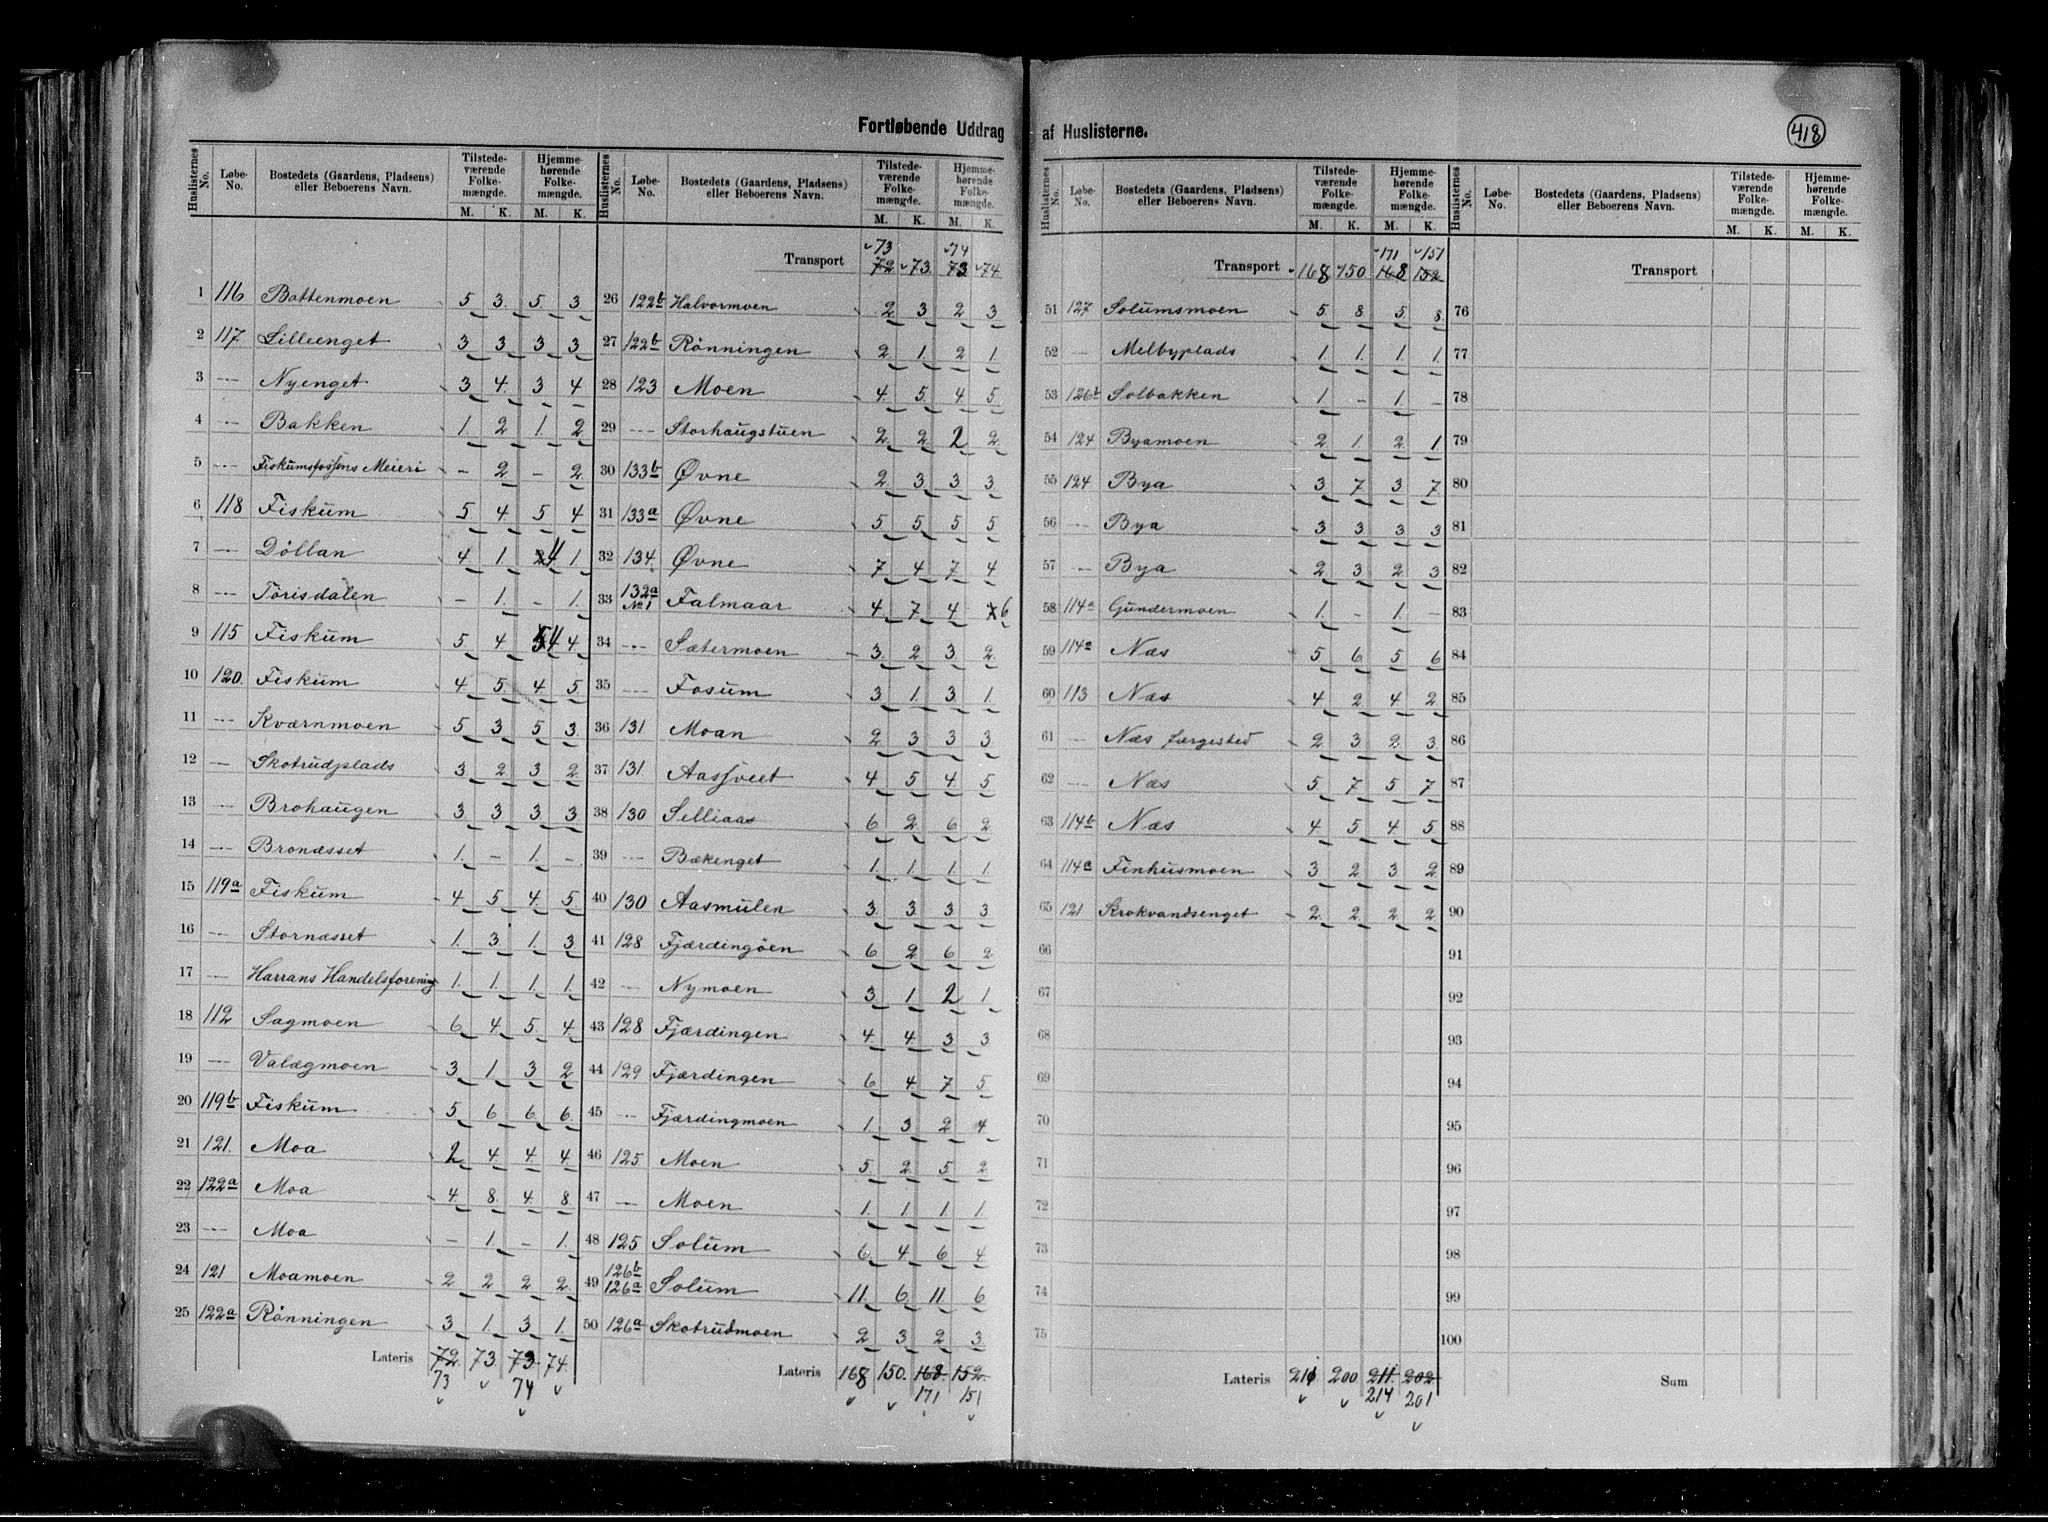 Fortløbende Uddrag af Huslisterne.
418
Huslisternes No. Løbe-No. Bostedets (Gaardens, Pladsens) eller Beboerens Navn. Tilstedeværende Folkemængde. M. K. Hjemmehørende Folkemængde. M. K.
1 116 Battenmoen 5 3 5 3
2 117 Lilleenget 3 3 3 3
3 --- Nyenget 3 4 3 4
4 --- Bakken 1 2 1 2
5 --- Fiskumsfossens Meieri - 2 - 2
6 118 Fiskum 5 4 5 4
7 --- Döllan 4 1 4 1
8 --- Törisdalen - 1 - 1
9 115 Fiskum 5 4 4 4
10 120 Fiskum 4 5 4 5
11 --- Kværnmoen 5 3 5 3
12 --- Skotrudplads 3 2 3 2
13 --- Brohaugen 3 3 3 3
14 --- Bronæsset 1 - 1 -
15 119a Fiskum 4 5 4 5
16 --- Stornæsset 1 3 1 3
17 --- Harrans Handelsforening 1 1 1 1
18 112 Sagmoen 6 4 5 4
19 --- Valægmoen 3 1 3 2
20 119b Fiskum 5 6 6 6
21 121 Moa 2 4 4 4
22 122a Moa 4 8 4 8
23 --- Moa - 1 - 1
24 121 Moamoen 2 2 2 2
25 122a Rönningen 3 1 3 1
Lateris 72 73 73 74
73 74
Huslisternes No. Løbe-No. Bostedets (Gaardens, Pladsens) eller Beboerens Navn. Tilstedeværende Folkemængde. M. K. Hjemmehørende Folkemængde. M. K.
73 74
Transport 72 73 73 74
26 122b Halvormoen 2 3 2 3
27 122b Rönningen 2 1 2 1
28 123 Moen 4 5 4 5
29 --- Storhaugstuen 2 2 2 2
30 133b Øvne 2 3 3 3
31 133a Øvne 5 5 5 5
32 134 Øvne 7 4 7 4
33 132a No 1 Falmaar 4 7 4 6
34 --- Sætermoen 3 2 3 2
35 --- Fosum 3 1 3 1
36 131 Moan 2 3 3 3
37 131 Aassveet 4 5 4 5
38 130 Selliaas 6 2 6 2
39 --- Bækenget 1 1 1 1
40 130 Aasmulen 3 3 3 3
41 128 Fjærdingöen 6 2 6 2
42 --- Nymoen 3 1 2 1
43 128 Fjærdingen 4 4 3 3
44 129 Fjærdingen 6 4 7 5
45 --- Fjærdingmoen 1 3 2 4
46 125 Moen 5 2 5 2
47 --- Moen 1 1 1 1
48 125 Solum 6 4 6 4
49 126b 126a Solum 11 6 11 6
50 126a Skotrudmoen 2 3 2 3
Lateris 168 150 168 152
171 151
Huslisternes No. Løbe-No. Bostedets (Gaardens, Pladsens) eller Beboerens Navn. Tilstedeværende Folkemængde. M. K. Hjemmehørende Folkemængde. M. K.
171 151
Transport 168 150 168 152
51 127 Solumsmoen 5 8 5 8
52 --- Melbyplads 1 1 1 1
53 126b Solbakken 1 - 1 -
54 124 Byamoen 2 1 2 1
55 124 Bya 3 7 3 7
56 --- Bya 3 3 3 3
57 --- Bya 2 3 2 3
58 114a Gundermoen 1 - 1 -
59 114a Næs 5 6 5 6
60 113 Næs 4 2 4 2
61 --- Næs færgested 2 3 2 3
62 --- Næs 5 7 5 7
63 114b Næs 4 5 4 5
64 114a Finhusmoen 3 2 3 2
65 121 Krokvandsenget 2 2 2 2
66
67
68
69
70
71
72
73
74
75
Lateris 211 200 211 202
214 201
Huslisternes No. Løbe-No. Bostedets (Gaardens, Pladsens) eller Beboerens Navn. Tilstedeværende Folkemængde. M. K. Hjemmehørende Folkemængde. M. K.
Transport
76
77
78
79
80
81
82
83
84
85
86
87
88
89
90
91
92
93
94
95
96
97
98
99
100
Sum